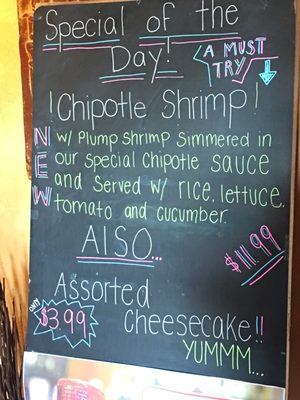 Special of the
Day!
A MUST
TRY
! Chipotle Shrimp!
NEW
w/ Plump shrimp simmered in
our special chipotle sauce
and served w/ rice, lettuce,
tomato and cucumber.
$11.99
Also...
Assorted
Cheesecake!!
only
$3.99
YUMMM...